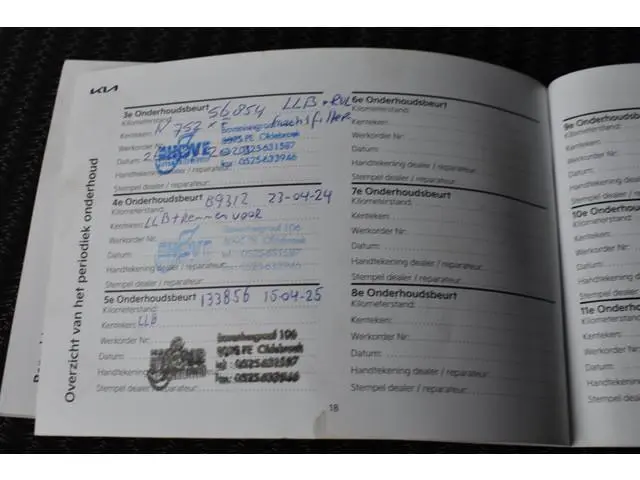 KIA
Overzicht van het periodiek onderhoud
3e Onderhoudsbeurt 56854 LLB + RVL
Kilometerstand:
Kenteken: N 757
Werkorder Nr:
Datum:
Handtekening dealer / reparateur:
Stempel dealer / reparateur:
9075 PE Oldebroek
0525631587
fax 0525633946
4e Onderhoudsbeurt 89312 23-04-24
Kilometerstand:
Kenteken: LLB + Remmen voor
Werkorder Nr:
Datum:
Handtekening dealer / reparateur:
Stempel dealer / reparateur:
106
Oldebroek
tel 0525631587
fax 0525633946
5e Onderhoudsbeurt 133856 15-04-25
Kilometerstand:
Kenteken: LLB
Werkorder Nr:
Datum:
Handtekening dealer / reparateur:
Stempel dealer / reparateur:
106
Oldebroek
tel : 0525631587
fax: 0525633946
6e Onderhoudsbeurt
Kilometerstand:
Kenteken:
Werkorder Nr:
Datum:
Handtekening dealer / reparateur:
Stempel dealer / reparateur:
7e Onderhoudsbeurt
Kilometerstand:
Kenteken:
Werkorder Nr:
Datum:
Handtekening dealer / reparateur:
Stempel dealer / reparateur:
8e Onderhoudsbeurt
Kilometerstand:
Kenteken:
Werkorder Nr:
Datum:
Handtekening dealer / reparateur:
Stempel dealer / reparateur:
18
9e Onderhoud
Kilometerstand:
Kenteken:
Werkorder Nr:
Datum:
Handtekening
Stempel deale
10e Onder
Kilometerstand
Kenteken:
Werkorder
Datum:
Handteken
Stempel de
11e Onde
Kilometersta
Kenteken:
Werkorder
Datum:
Handteke
Stempel d